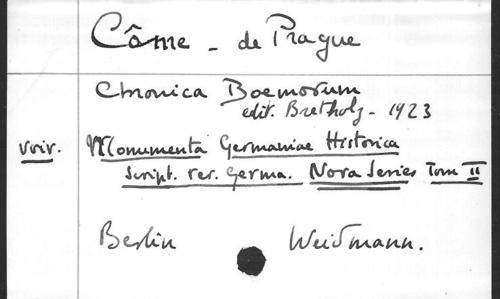 Côme - de Prague
Chronica Boemorum
edit. Bretholz - 1923
voir. Monumenta Germaniae Historica
script. rer. Germa. Nova Series Tom II
Berlin Weidmann.